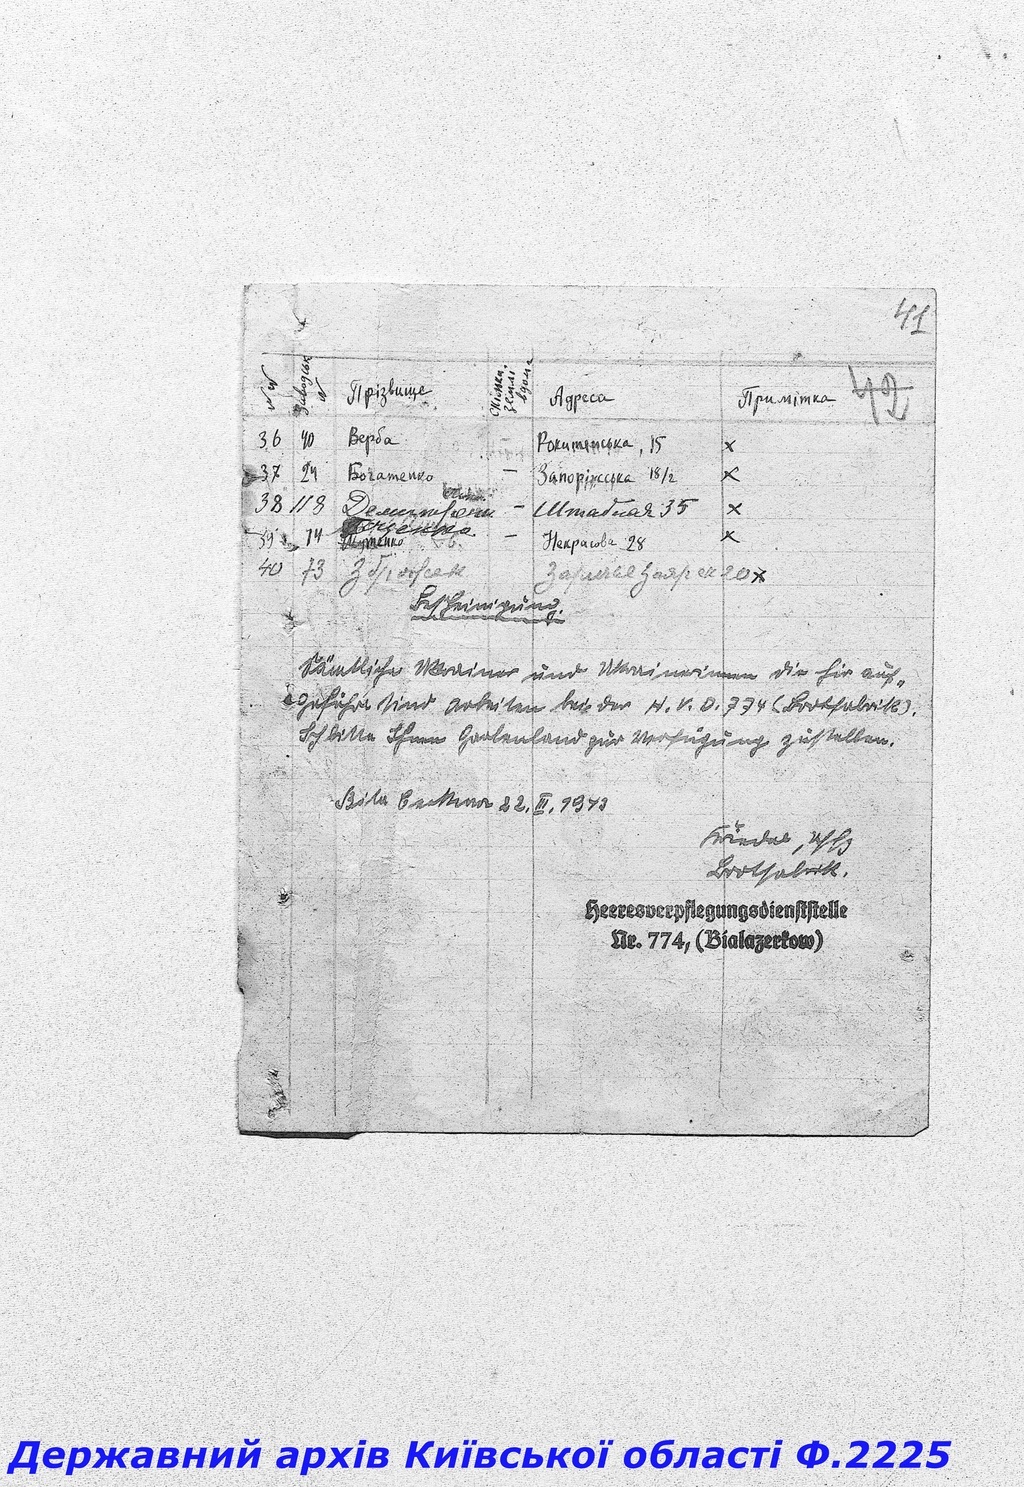 41
42
№№ Заводськ № Прізвище Скільки землі вдома Адреса Примітка
36 40 Верба Рокитянська, 15 x
37 24 Богатенко — Запоріжська 18/2 x
38 118 — Штабная 35 x
39 14 — Некрасова 28 x
40 73 20 x
Bescheinigung.
Sämtliche Ukrainer und Ukrainerinnen die hir auf„
geführt sind arbeiten bei der H.V.D. 774 (Brotfabrik).
Ich bitte Ihnen Gartenland zur Verfügung zustellen.
Bila 22. III. 1943
Uffz
Brotfabrik.
Heeresverpflegungsdienststelle
Nr. 774, (Bialazerkow)
Державний архів Київської області Ф.2225